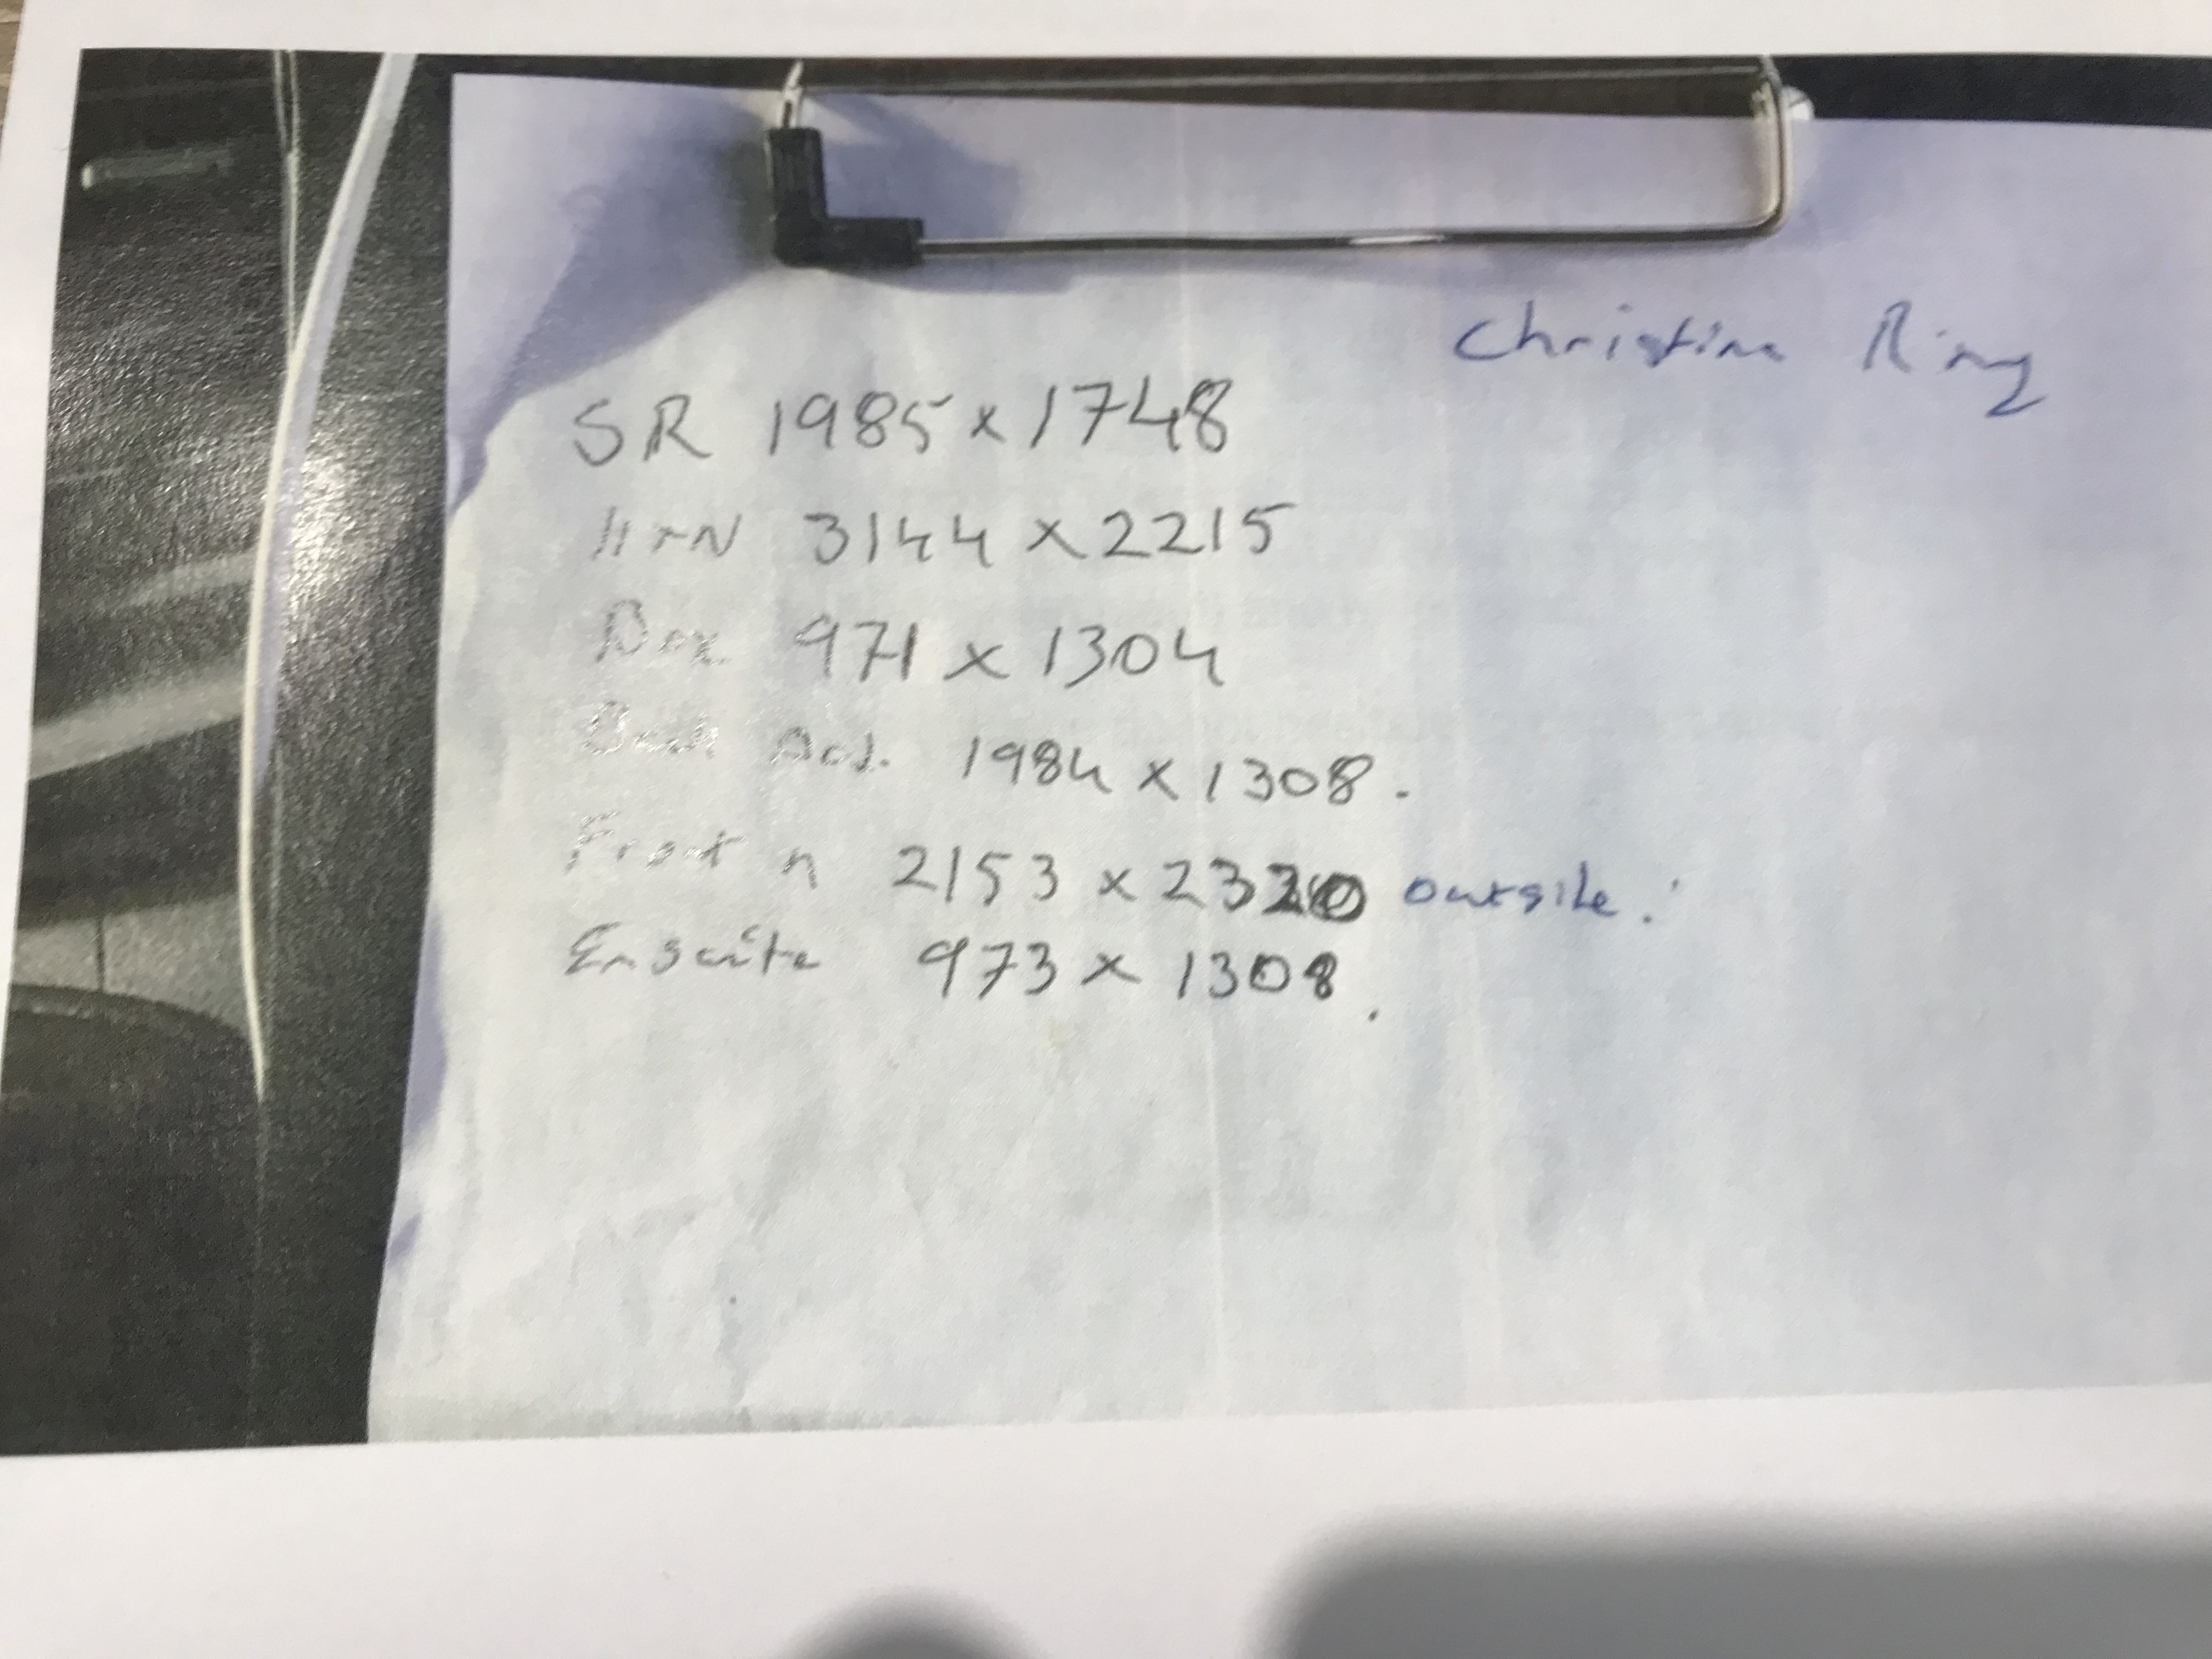 Christine Ring
SR 1985 x 1748
3144 x 2215
971 x 1304
1984 x 1308.
Front n 2153 x 2320 outside.
Ensuite 973 x 1308.